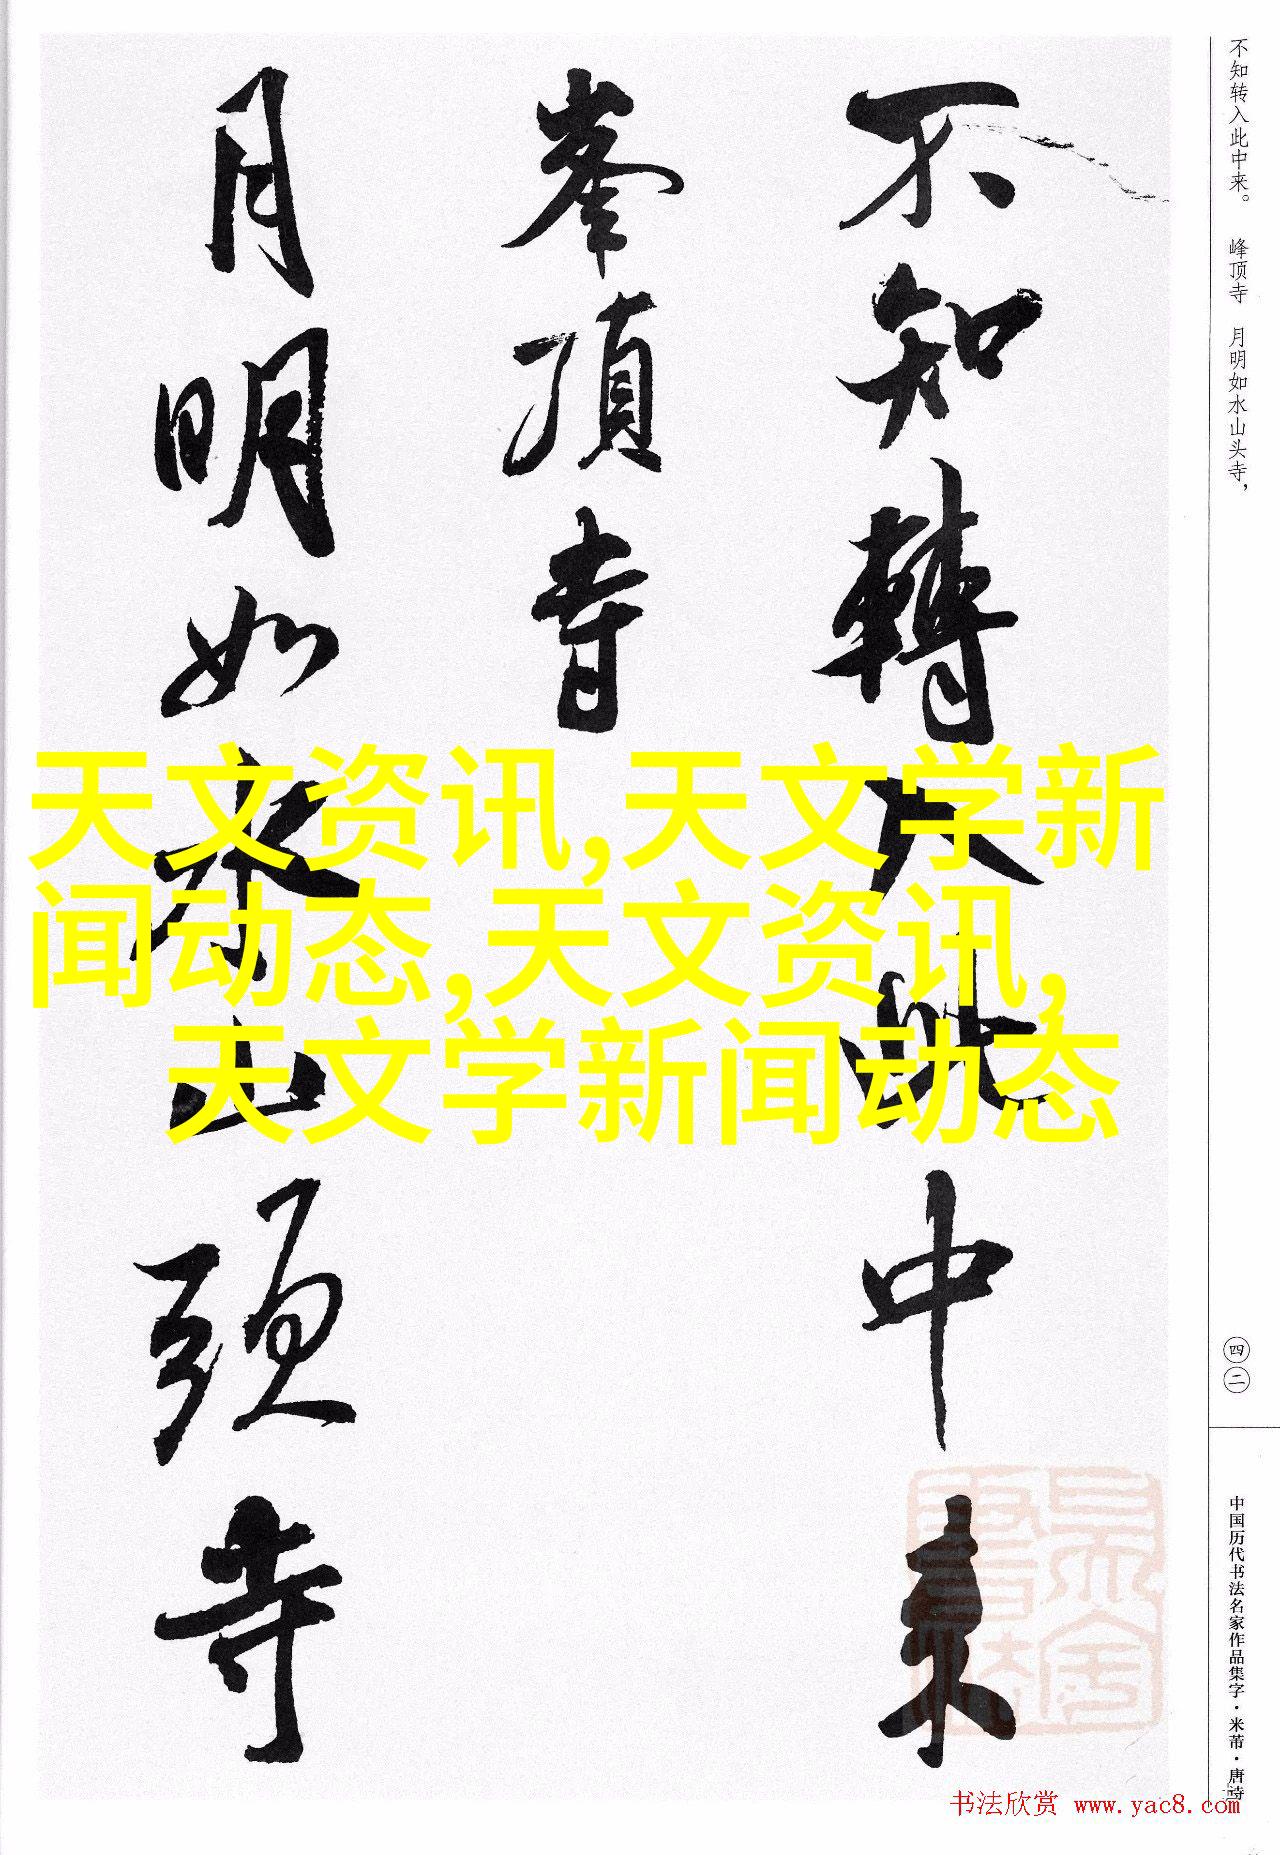 不知转入此中来。 峰顶寺 月明如水山头寺，
不知轉入此中来
峯頂寺
月明如水山頭寺
天文资讯,天文学新
闻动态,天文资讯,
天文学新闻动态
四二
中国历代书法名家作品集字·米芾·唐诗
书法欣赏 www.yac8.com